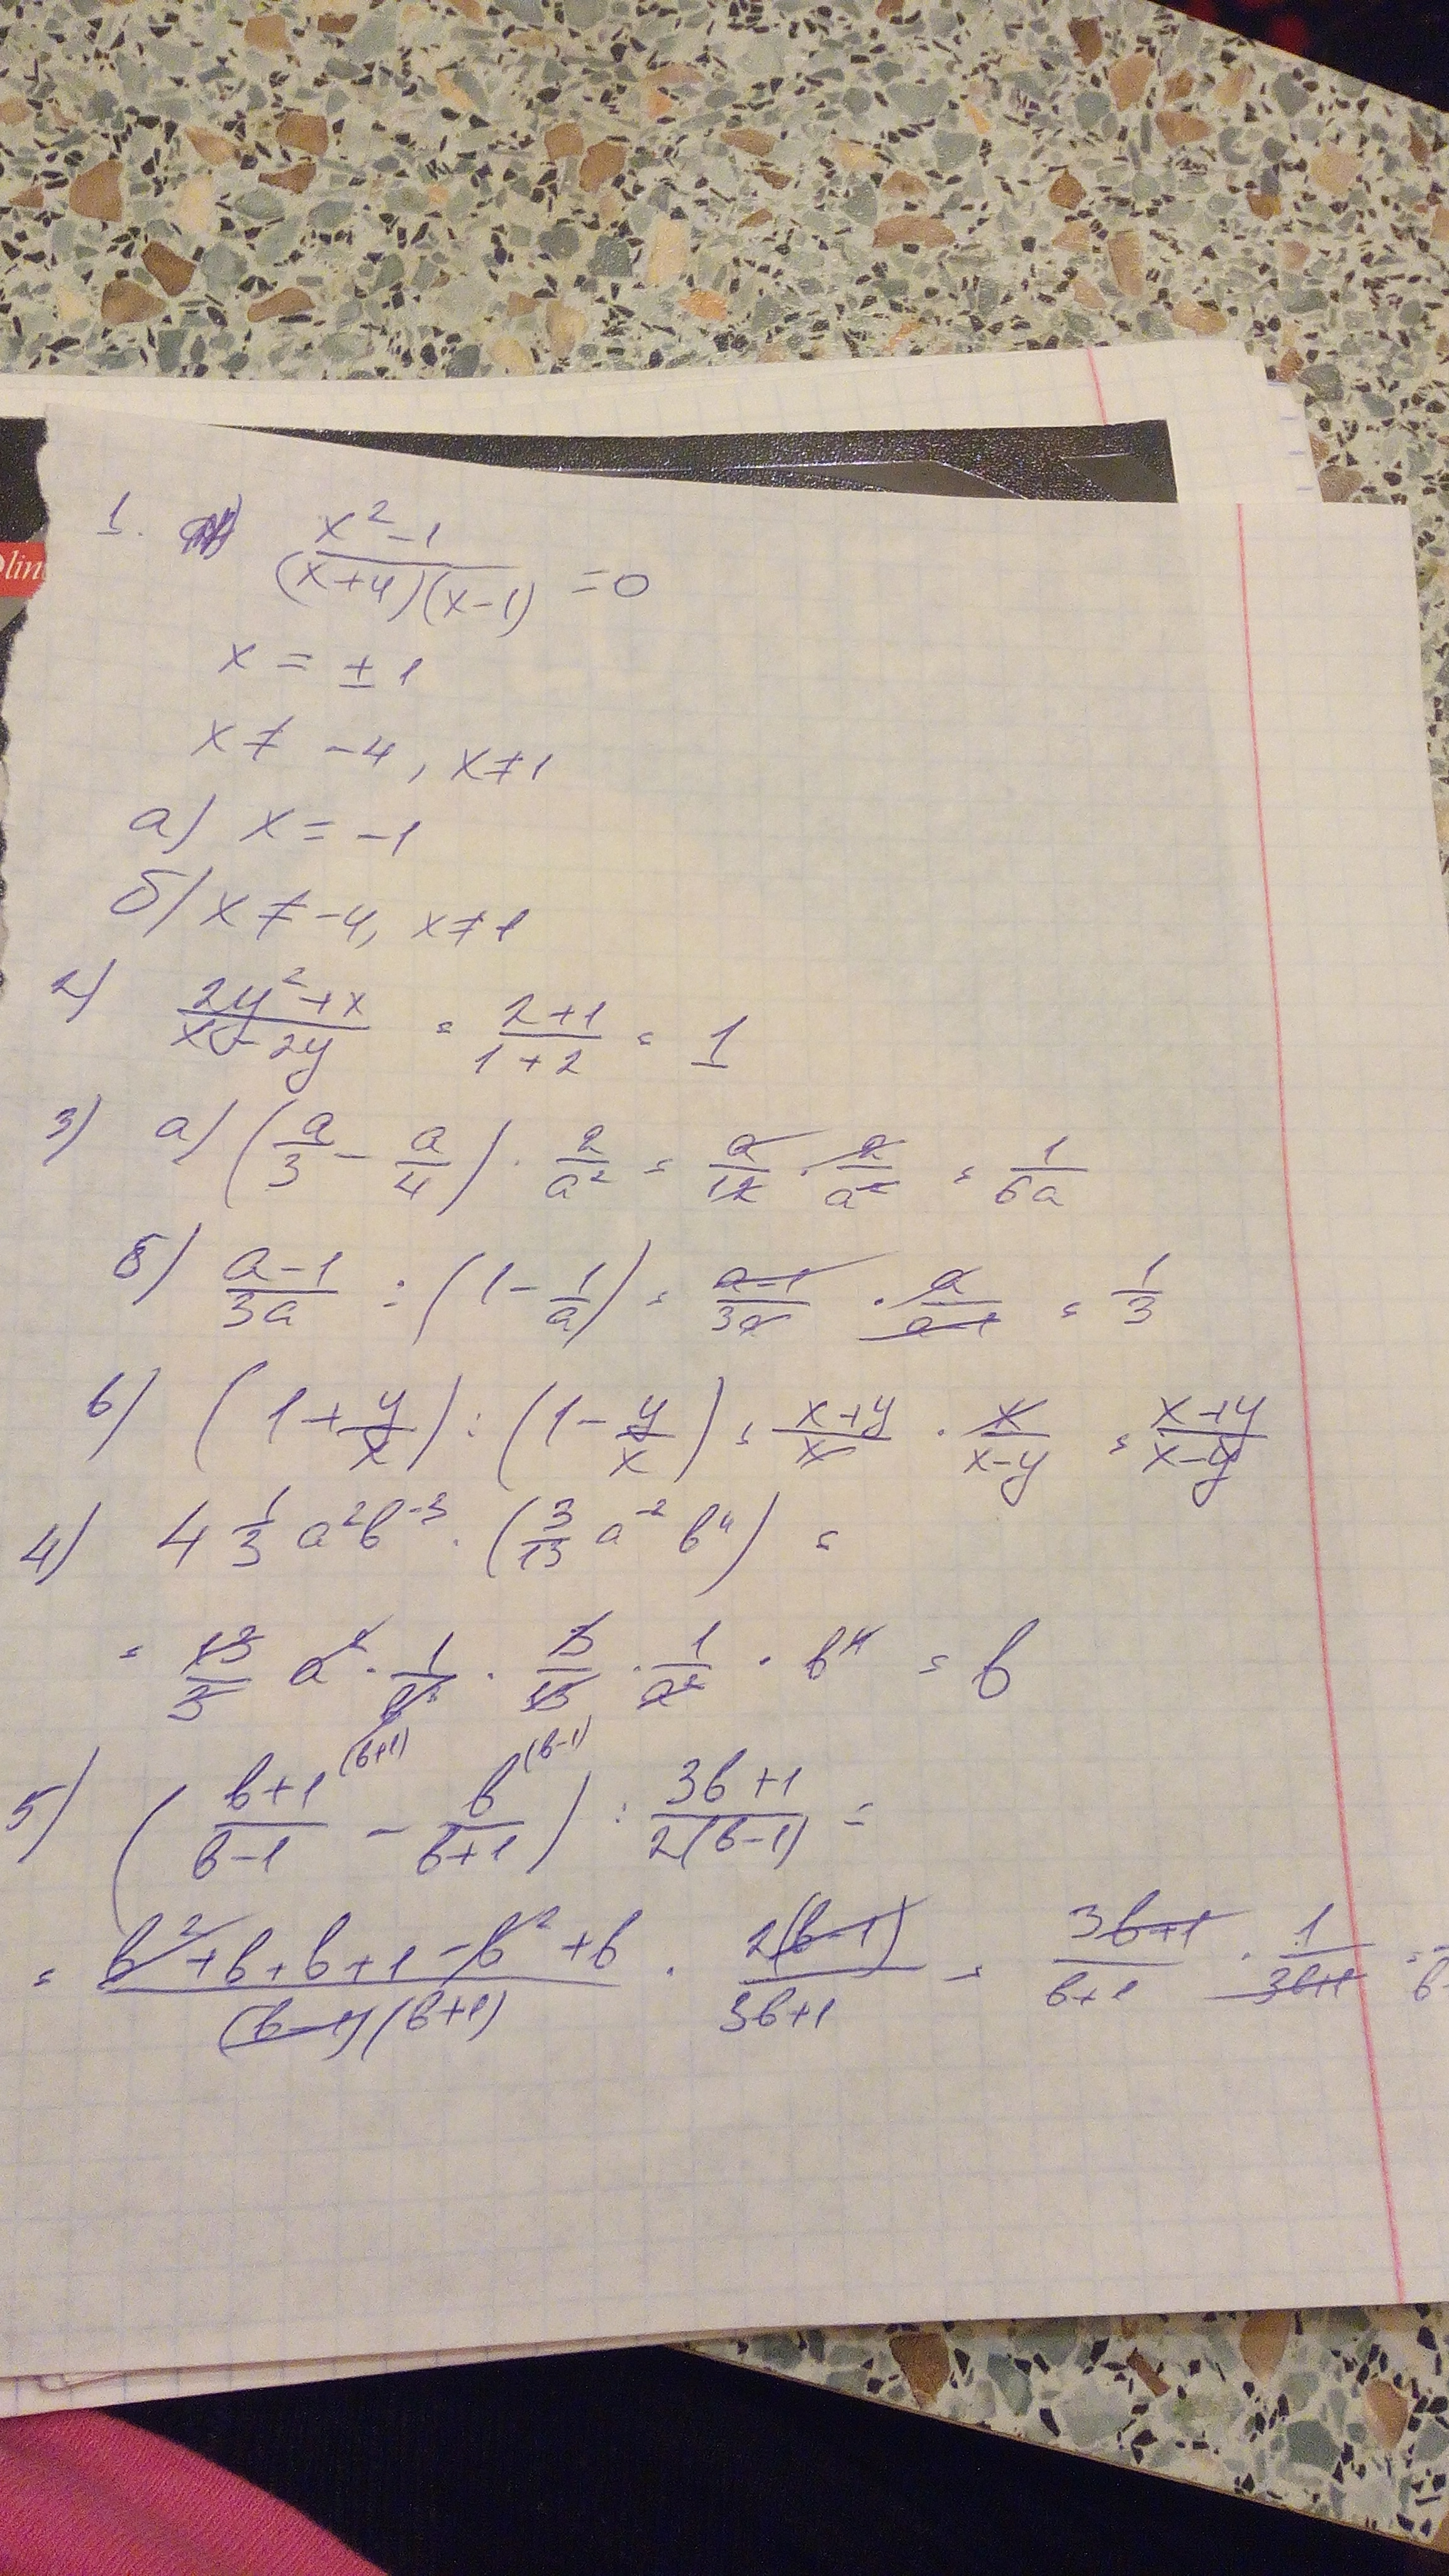 1. x²-1 / (x+4)(x-1) = 0
x = ± 1
x ≠ -4, x ≠ 1
а) x = -1
б) x ≠ -4, x ≠ 1
2) 2y²+x / x-2y = 2+1 / 1+2 = 1
3) а) (a/3 - a/4) · 2/a² = a/12 · 2/a² = 1/6a
б) a-1 / 3a : (1 - 1/a) = a-1 / 3a · a / a-1 = 1/3
в) (1 + y/x) : (1 - y/x) = x+y / x · x / x-y = x+y / x-y
4) 4 1/3 a²b⁻³ · (3/13 a⁻² b⁴) =
= 13/3 a² · 1/b³ · 3/13 · 1/a² · b⁴ = b
5) (b+1 / b-1 ^(b+1) - b / b+1 ^(b-1)) : 3b+1 / 2(b-1) =
= b²+b+b+1-b²+b / (b-1)(b+1) · 2(b-1) / 3b+1 = 3b+1 / b+1 · 1 / 3b+1 =